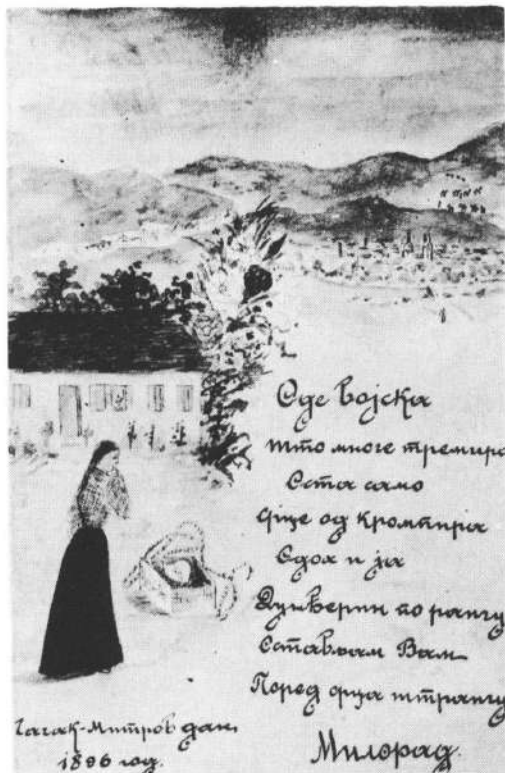 Оде војска
што многе тремира
Оста само
од кромпира
Одох и ја
по рангу
Остављам Вам
Поред штрангу
Милорад.
Чачак-Митров дан
1896 год.